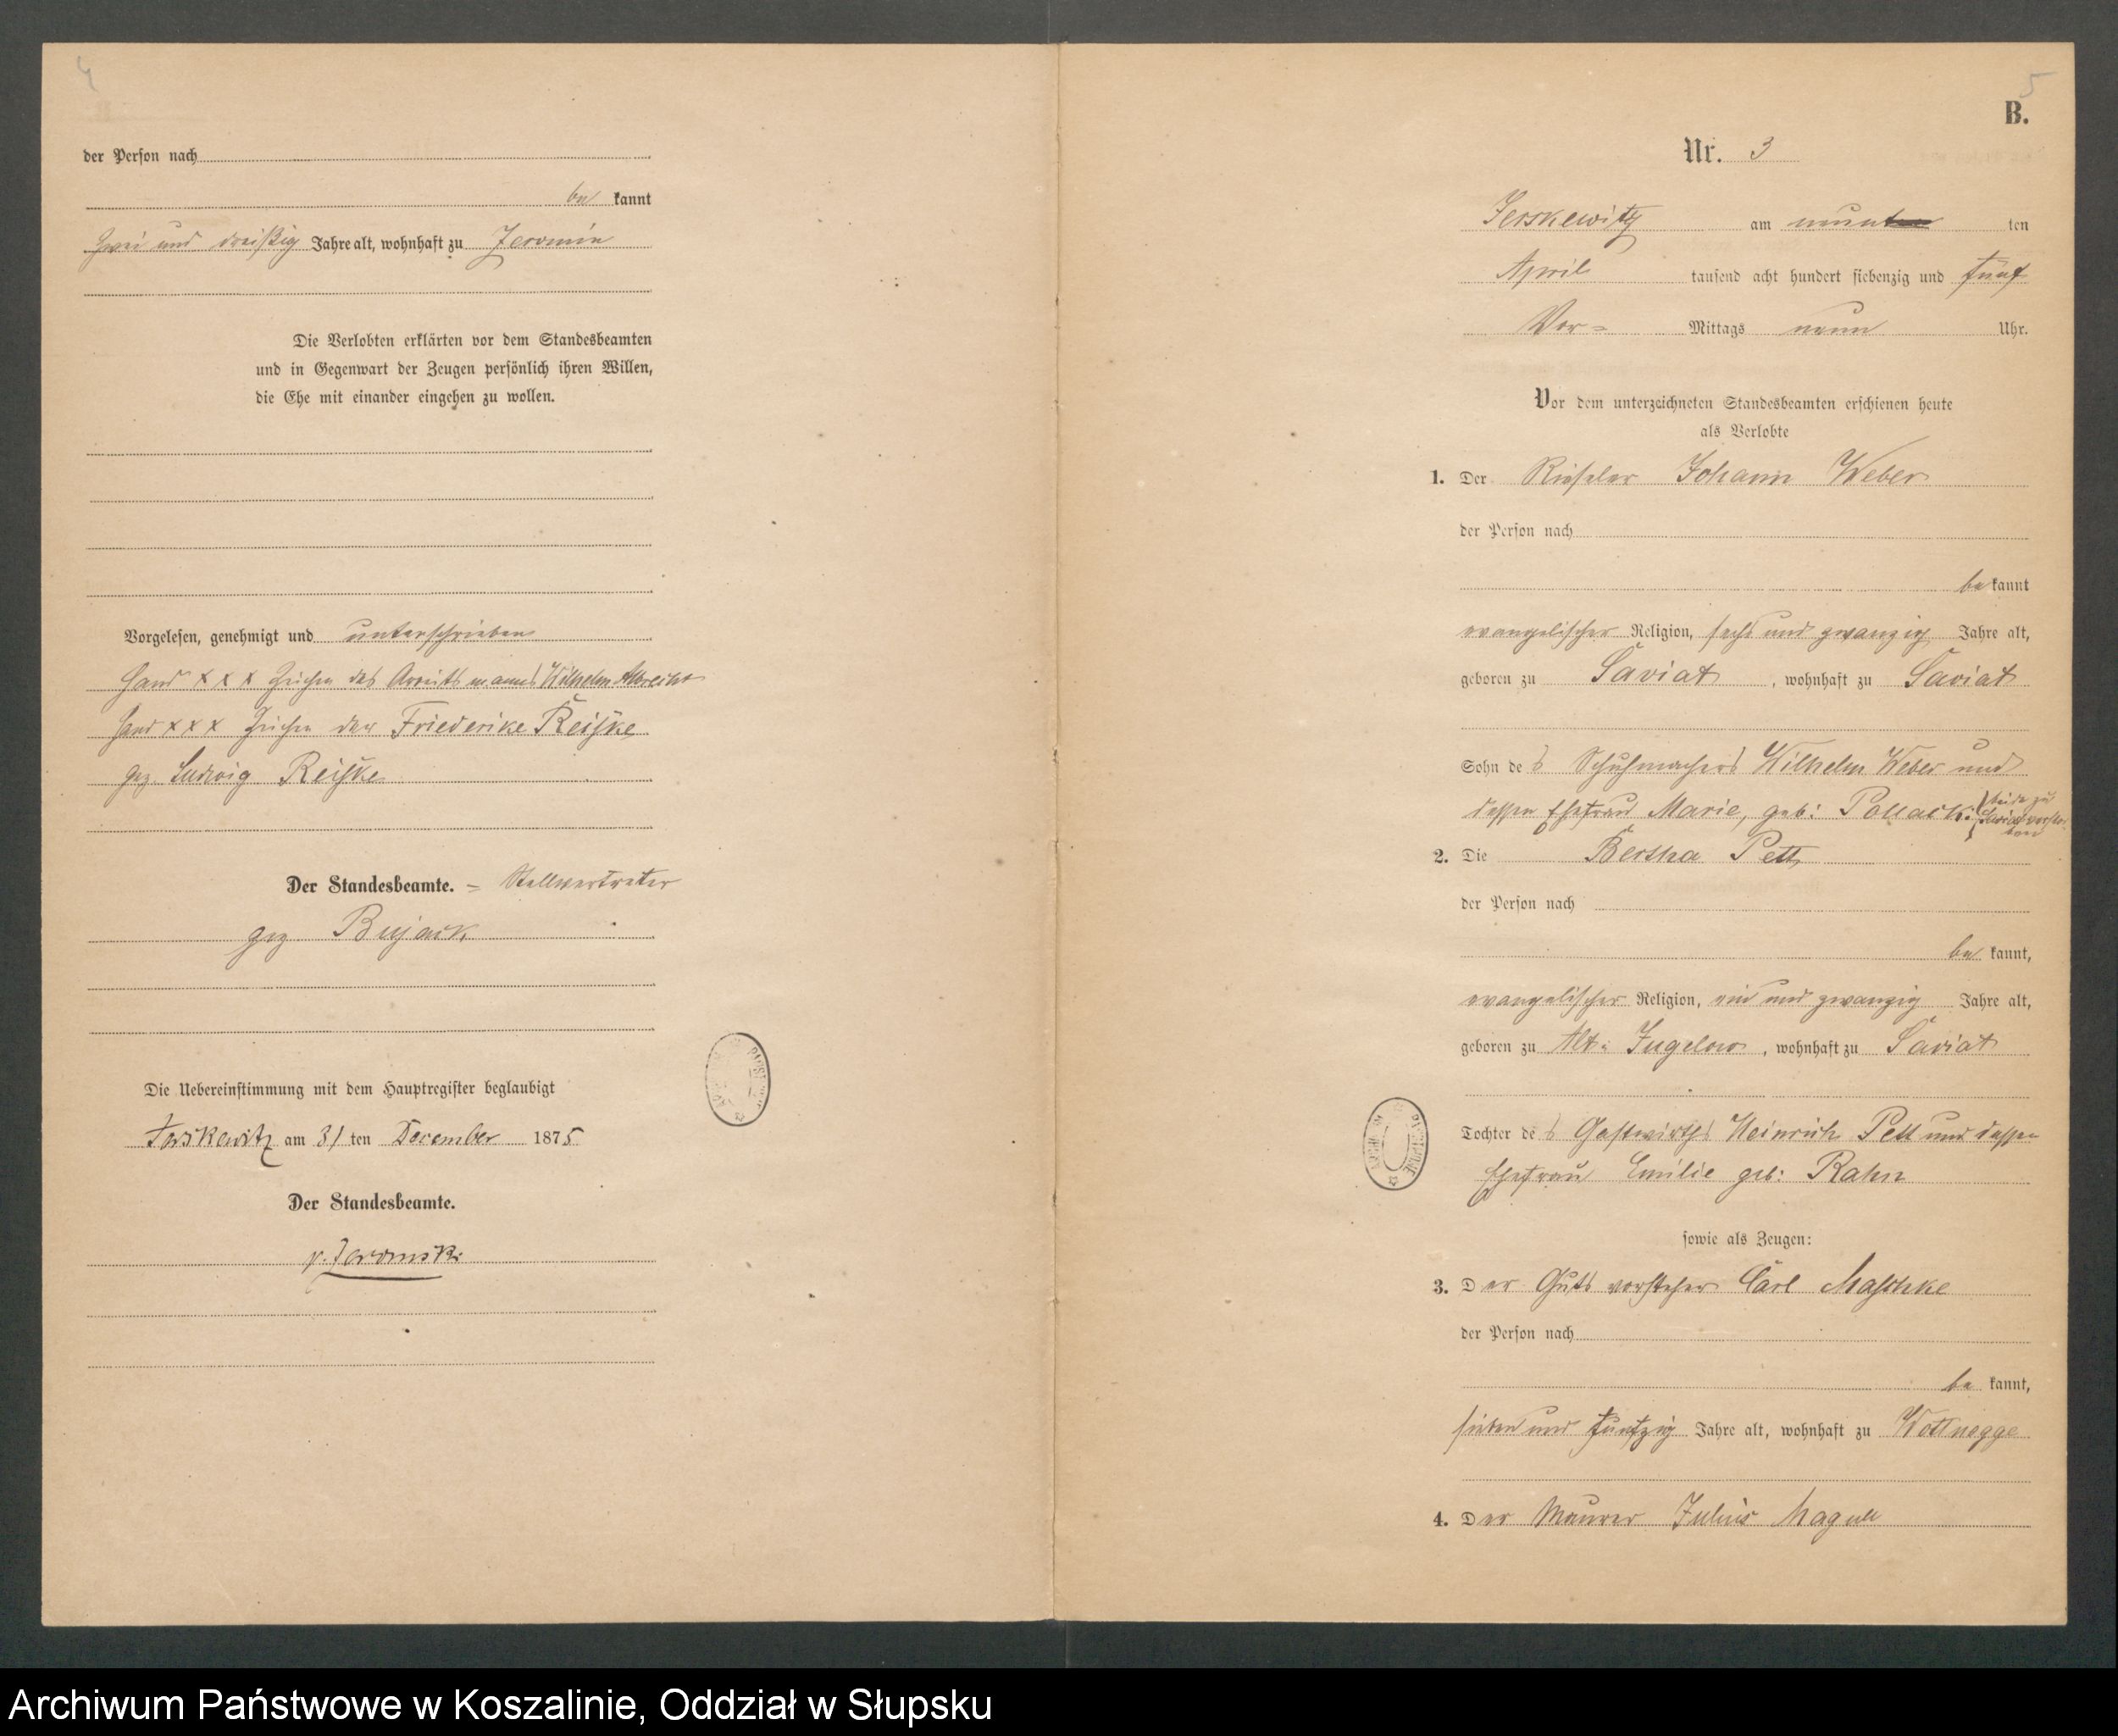 4
der Person nach
be kannt
zwei und dreißig Jahre alt, wohnhaft zu Jeromin
Die Verlobten erklärten vor dem Standesbeamten
und in Gegenwart der Zeugen persönlich ihren Willen,
die Ehe mit einander eingehen zu wollen.
Vorgelesen, genehmigt und unterschrieben
Hand x x x Zeichen des Arbeitsmanns Wilhelm Albrecht
Hand x x x Zeichen der Friederike Reischke
gez. Ludwig Reischke
Der Standesbeamte. = Stellvertreter
gez Bujack
Die Uebereinstimmung mit dem Hauptregister beglaubigt
Jerskewitz am 31 ten December 1875
Der Standesbeamte.
5
B.
Nr. 3
Jerskewitz am neunten ten
April tausend acht hundert siebenzig und fünf
Vor= Mittags neun Uhr.
Vor dem unterzeichneten Standesbeamten erschienen heute
als Verlobte
1. Der Rieseler Johann Weber
der Person nach
be kannt
evangelischer Religion, sechs und zwanzig Jahre alt,
geboren zu Saviat, wohnhaft zu Saviat
Sohn des Schuhmachers Wilhelm Weber und
dessen Ehefrau Marie, geb: Pollack: beide zu
Saviat verstor-
ben
2. Die Bertha Pett
der Person nach
be kannt,
evangelischer Religion, ein und zwanzig Jahre alt,
geboren zu Alt= Jugelow, wohnhaft zu Saviat
Tochter des Gastwirths Heinrich Pett und dessen
Ehefrau Emilie geb: Rahn
sowie als Zeugen:
3. Der Gutsvorsteher Carl Maschke
der Person nach
be kannt,
sieben und funfzig Jahre alt, wohnhaft zu Wottnogge
4. Der Maurer Julius
Archiwum Państwowe w Koszalinie, Oddział w Słupsku